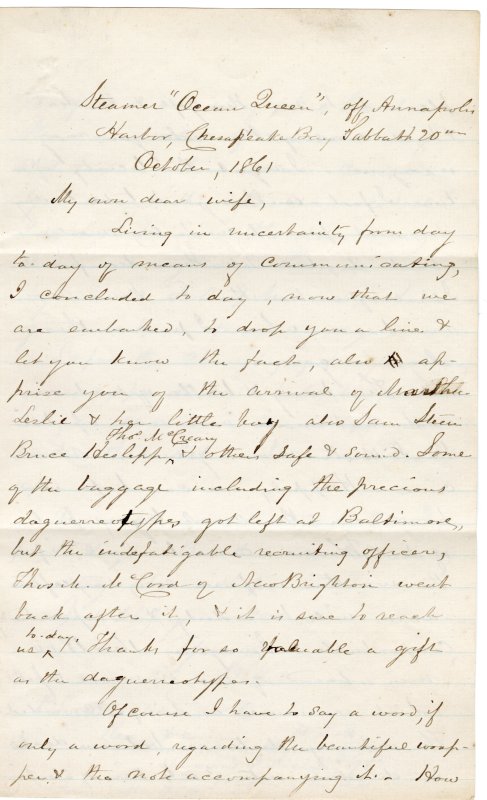 Steamer "Ocean Queen", off Annapolis
Harbor, Chesapeake Bay Sabbath 20th
October, 1861
My own dear wife,
Living in uncertainty from day
to day of means of communicating,
I concluded to day, now that we
are embarked, to drop you a line &
let you know the fact, also ap-
prise you of the arrival of Martha
Leslie & her little boy also Sam Steen
Thos McCreary
Bruce Heslepp ^ & others safe & sound. Some
of the baggage including the precious
daguerreotypes got left at Baltimore,
but the indefatigable recruiting officer,
Thos. M. McCord of New Brighton went
back after it, & it is sure to reach
to-day.
us ^ Thanks for so valuable a gift
as the daguerreotypes.
Of course I have to say a word, if
only a word, regarding the beautiful wrap-
per & the note accompanying it. How